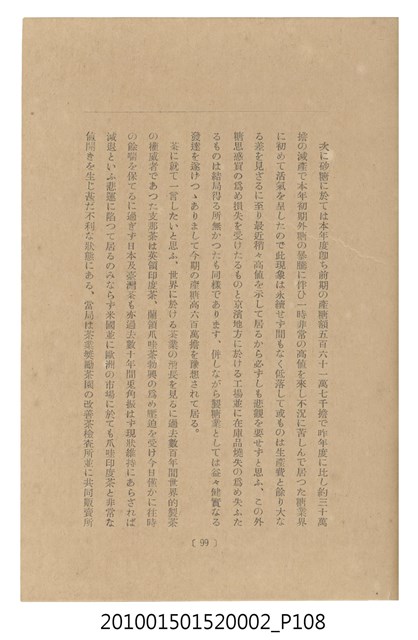 次に砂糖に於ては本年度即ち前期の産糖額五百六十一萬七千擔で昨年度に比し約三十萬
擔の減產で本年初期外糖の暴騰に伴ひ一時非常の高値を來し不況に苦しんで居つた糖業界
に初めて活氣を呈したので此現象は永續せず間もなく低落して或ものは生産費と餘り大な
る差を見ざるに至り最近稍々高値を示して居るから必ずしも悲觀を要せずと思ふ、この外
糖思惑買の爲め損失を受けたるものと京濱地方に於ける工場並に在庫品燒失の爲め失ふた
るものは結局得る所無かつたも同樣であります、併しながら製糖業としては益々健實なる
發達を遂げつゝありまして今期の產糖高六百萬擔を豫想されて居る。
茶に就て一言したいと思ふ、世界に於ける茶業の消長を見るに過去數百年間世界的製茶
の權威者であつた支那茶は英領印度茶、蘭領爪哇茶勃興の爲め壓迫を受け今日僅かに往時
の餘喘を保てるに過ぎず日本及臺灣茶も亦過去數十年間兎角振はず現狀維持にあらざれば
減退といふ悲運に陷つて居るのみならず米國並に歐洲の市場に於ても爪哇印度茶と非常な
値開きを生じ甚だ不利な狀態にある。當局は茶業奬勵茶園の改善茶檢査所並に共同販賣所
( 99 )
201001501520002_P108